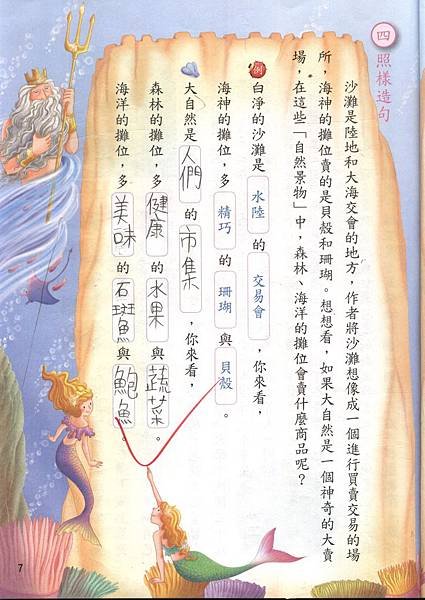 四 照樣造句
沙灘是陸地和大海交會的地方，作者將沙灘想像成一個進行買賣交易的場
所，海神的攤位賣的是貝殼和珊瑚。想想看，如果大自然是一個神奇的大賣
場，在這些「自然景物」中，森林、海洋的攤位會賣什麼商品呢？
例 白淨的沙灘是 水陸 的 交易會，你來看，
海神的攤位，多 精巧 的 珊瑚 與 貝殼。
大自然是 人們 的 市集，你來看，
森林的攤位，多 健康 的 水果 與 蔬菜。
海洋的攤位，多 美味 的 石斑魚 與 鮑魚。
7